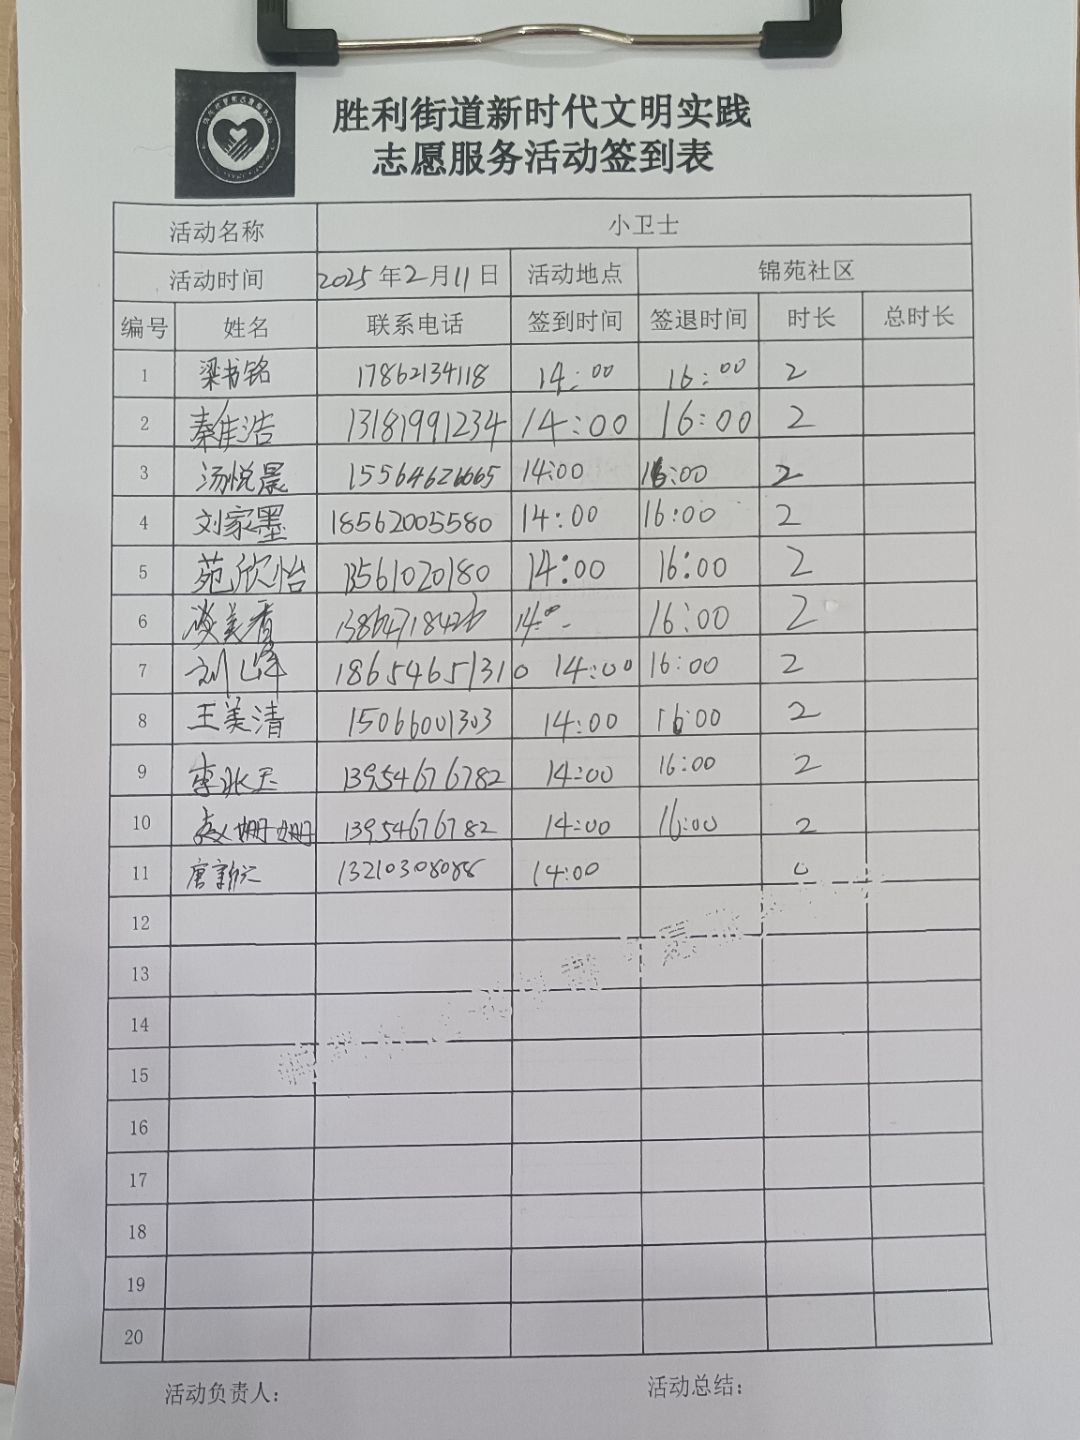 胜利街道新时代文明实践
志愿服务活动签到表
活动名称 小卫士
活动时间 2025年2月11日 活动地点 锦苑社区
编号 姓名 联系电话 签到时间 签退时间 时长 总时长
1 梁书铭 17862134118 14:00 16:00 2
2 秦维浩 13181991234 14:00 16:00 2
3 汤悦晨 15564626665 14:00 16:00 2
4 刘家墨 18562005580 14:00 16:00 2
5 苑欣怡 13561020180 14:00 16:00 2
6 美香 13864718426 14:00 16:00 2
7 刘峰 18654651310 14:00 16:00 2
8 王美清 15066001303 14:00 16:00 2
9 李 玉 13954676782 14:00 16:00 2
10 赵姗姗 13954676782 14:00 16:00 2
11 唐新 13210308088 14:00
12
13
14
15
16
17
18
19
20
活动负责人: 活动总结: